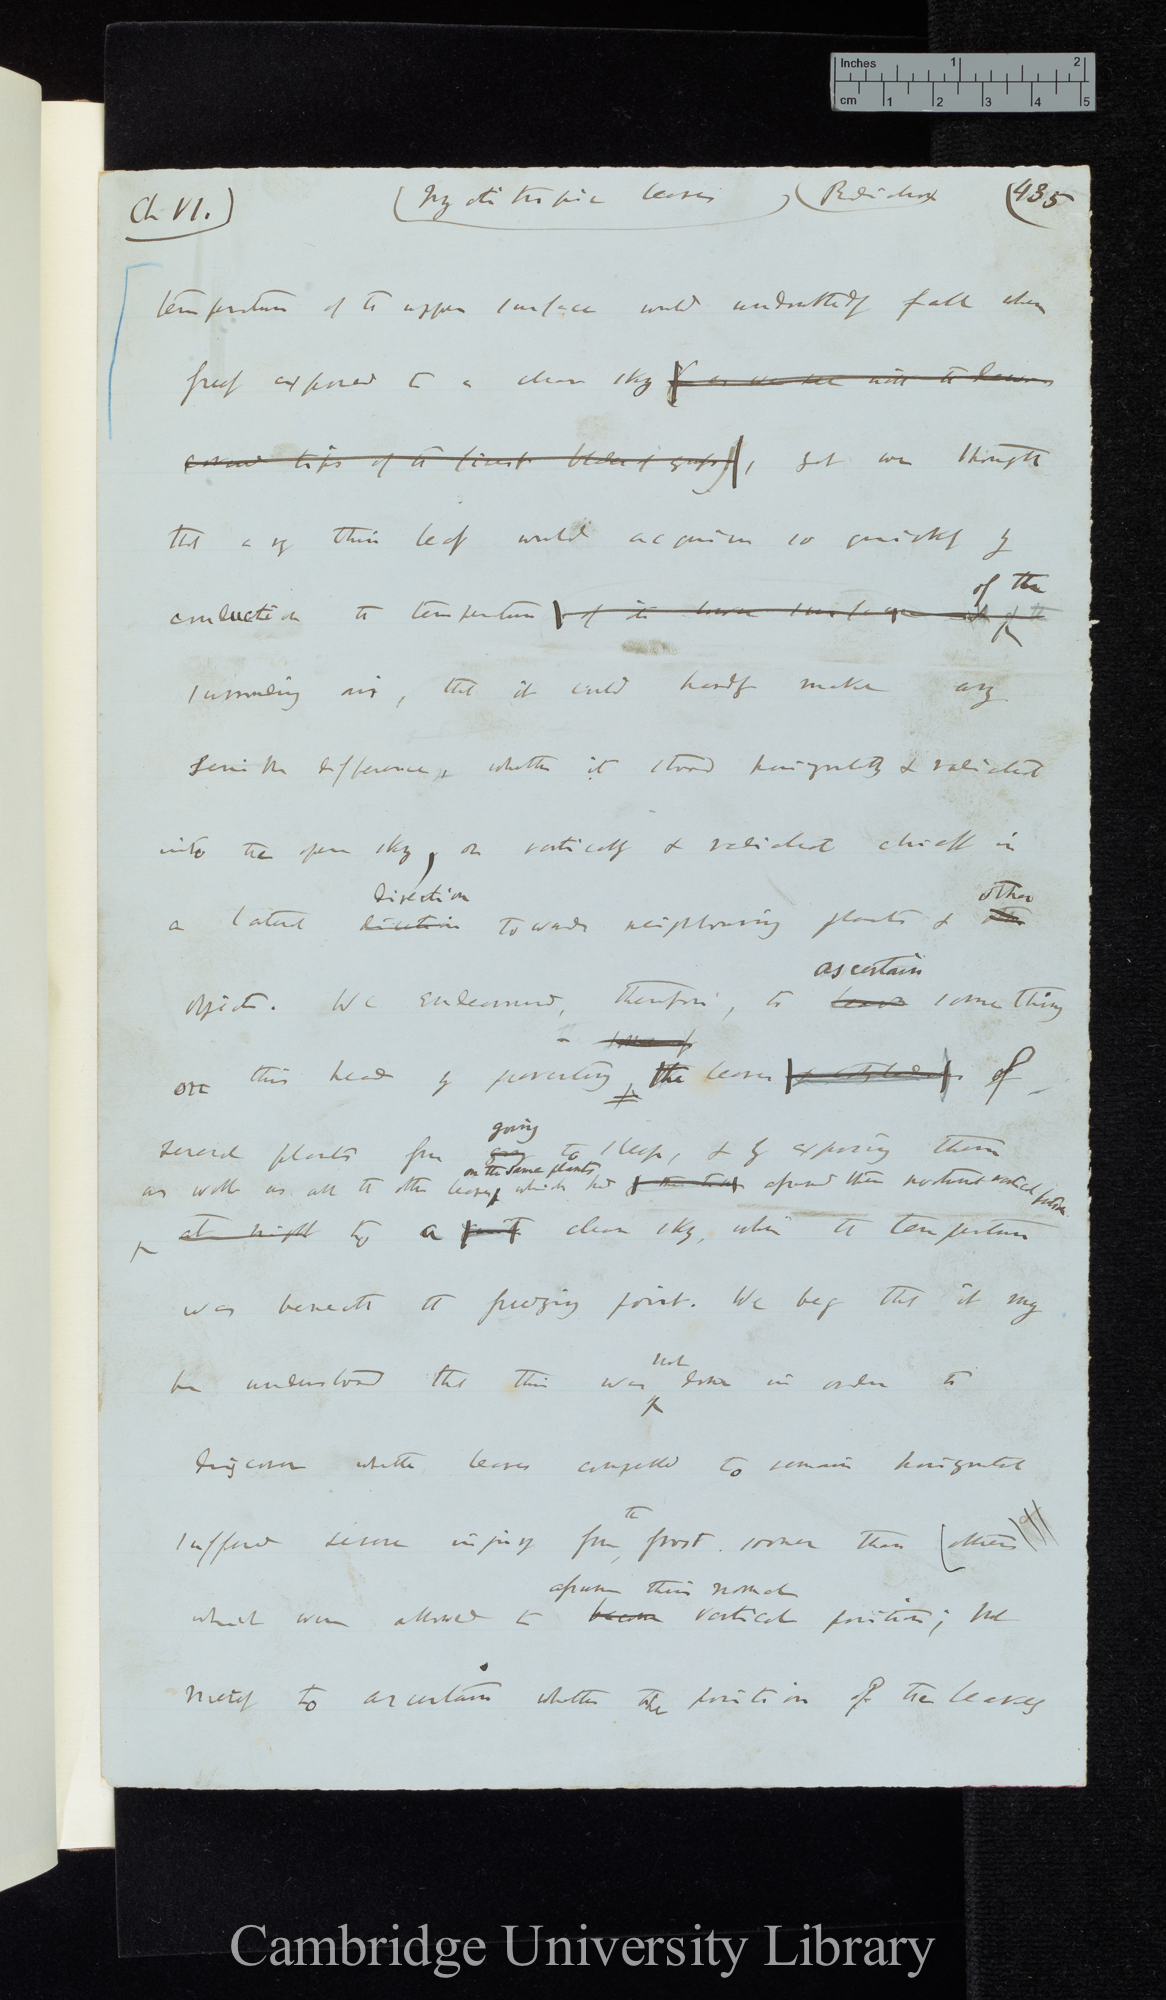 Inches 1 2
cm 1 2 3 4 5
Ch VI.) (Nyctitropic leaves) (Radiation (435
temperature of the upper surface would undoubtedly fall when
freely exposed to a clear sky (as we see with the
tips of the finest blades of grass), yet we thought
that a very thin leaf would acquire so quickly by
of the
conduction the temperature of its lower surface
surrounding air, that it could hardly make any
sensible difference, whether it stood horizontally & radiated
into the open sky, or vertically & radiated chiefly in
direction other
a lateral direction towards neighbouring plants & other
ascertain
objects. We endeavoured, therefore, to learn something
some of
on this head by preventing the leaves of
going
several plants from going to sleep, & by exposing them
on the same plants
as well as all the other leaves which had assumed their nocturnal vertical position
at night to a clear sky, when the temperature
was beneath the freezing point. We beg that it may
not
be understood that this was done in order to
discover whether leaves compelled to remain horizontal
the
suffered severe injury from frost sooner than (others)
assume their normal
which were allowed to become vertical position; but
merely to ascertain whether the position of the leaves
Cambridge University Library